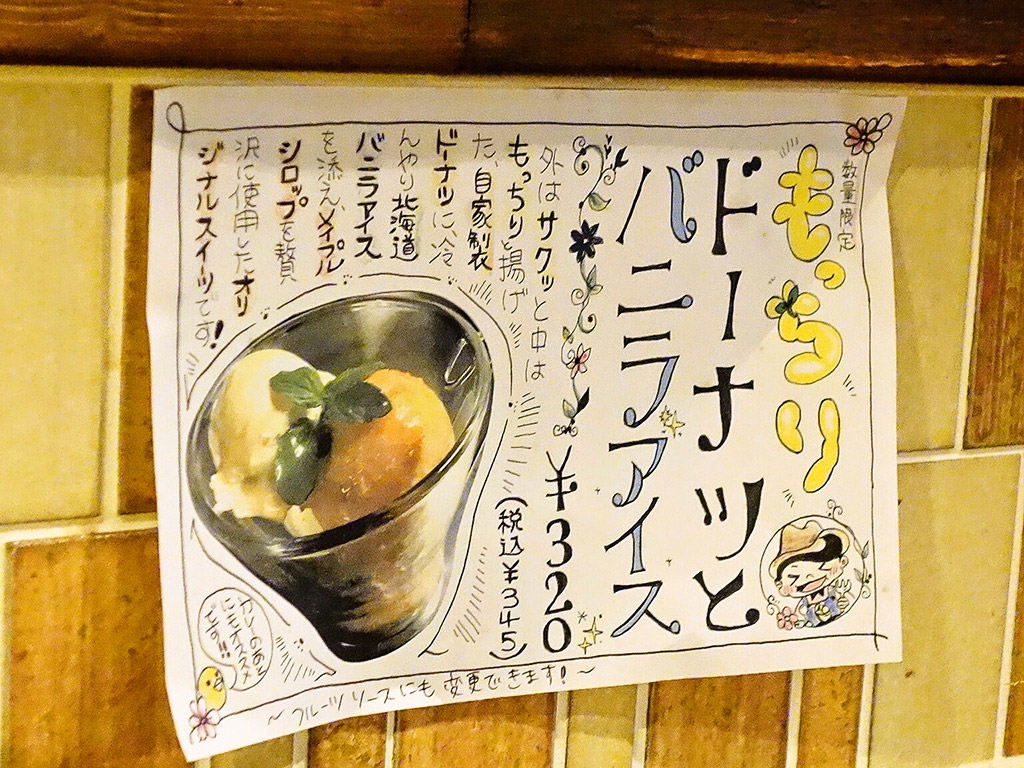 数量限定
もっちり
ドーナッツと
バニラアイス
¥320
(税込¥345)
外はサクッと中は
もっちりと揚げ
た、自家製
ドーナッツに、冷
んやり北海道
バニラアイス
を添え、メイプル
シロップを贅
沢に使用したオリ
ジナルスイーツです!
カレーのあと
にモオススメ
です!!!
〜フルーツソースにも変更できます!〜